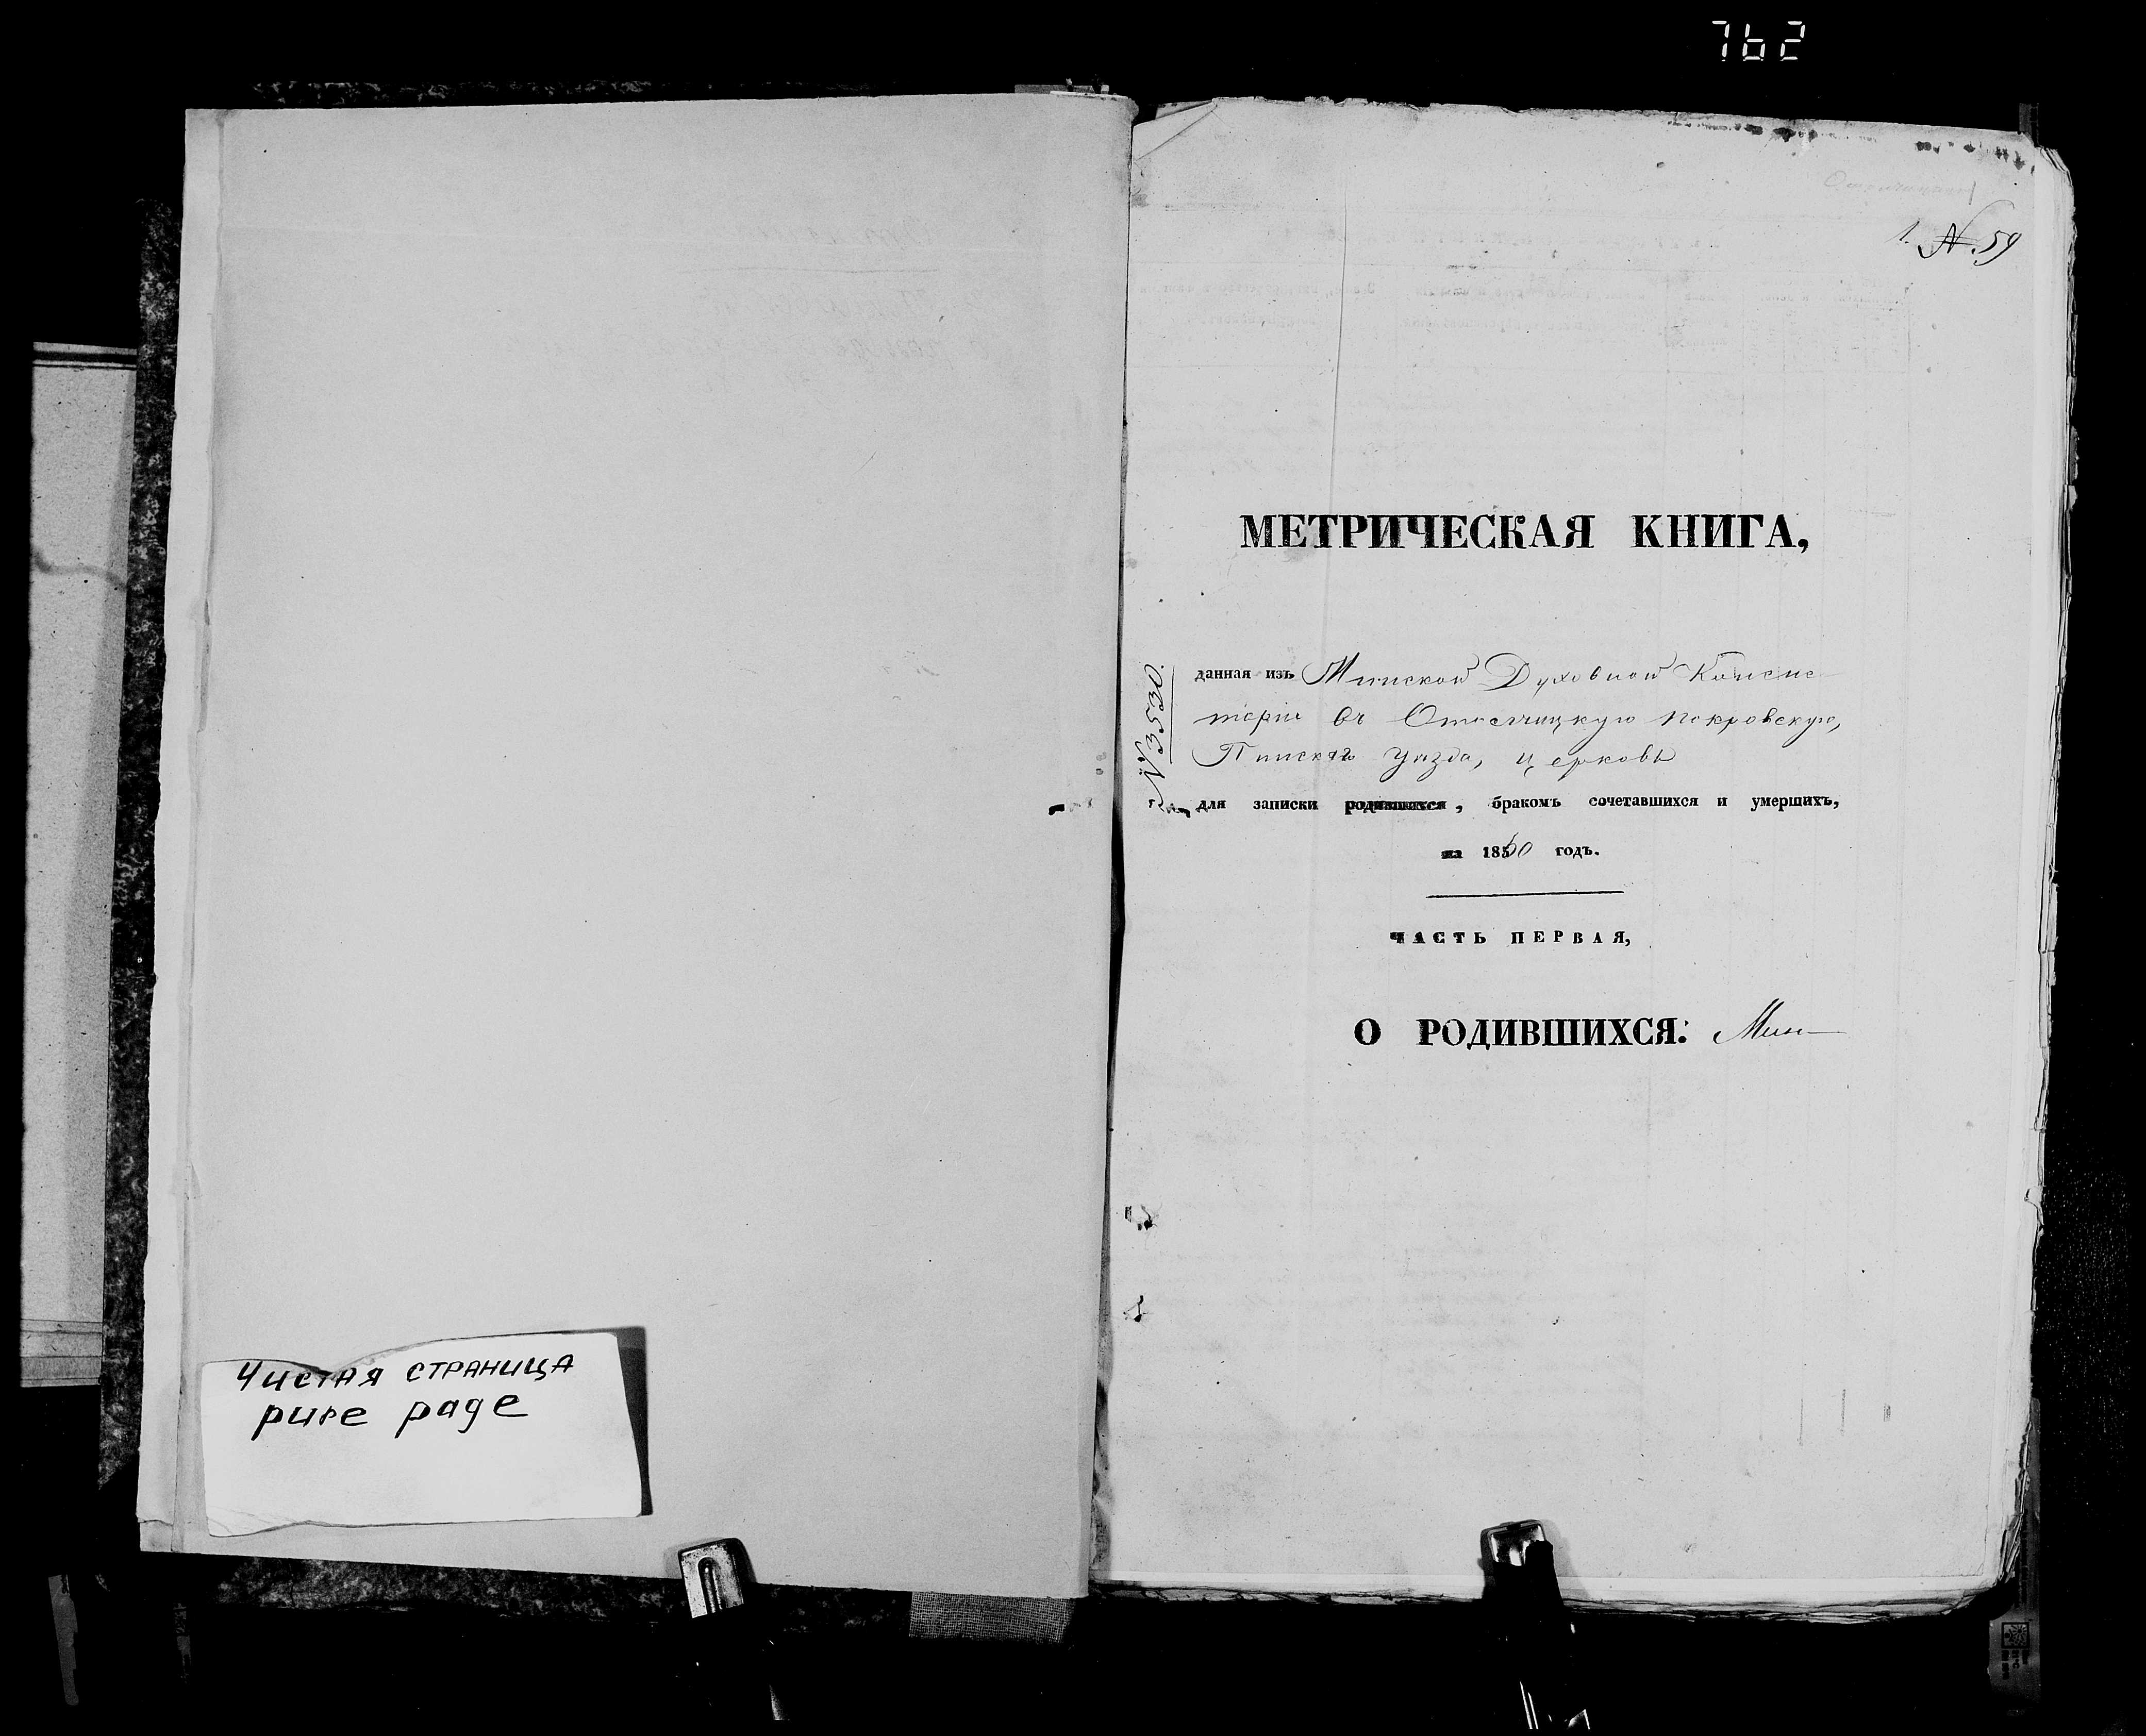 762
1. №. 59
МЕТРИЧЕСКАЯ КНИГА,
№ 3530.
данная изъ Минской Духовной Консис
торіи въ Отолчицкую Покровскую,
Пинскаго уѣзда, церковь
для записки родившихся, бракомъ сочетавшихся и умершихъ,
на 1860 годъ.
ЧАСТЬ ПЕРВАЯ,
О РОДИВШИХСЯ:
Чистая страница
pure page